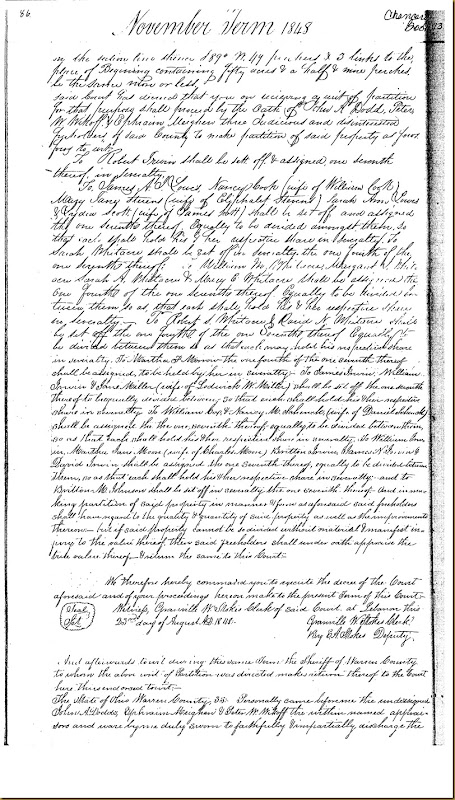 86
Chancery
November Term 1848
in the section line thence S 89° W. 47 perches & 3 links to the
place of Beginning containing fifty acres & a half & nine perches
be the same more or less,
said Court has decreed that you on receiving a writ of partition
for that purpose shall proceed by the Oath of John A. Dodd, Peter
W. Wikoff & Ephraim Meighan three Judicious and disinterested
freeholders of said County to make partition of said property as follows
to wit:
To Robert Irwin shall be sett off & assigned one seventh
thereof in severalty.
To James A. Lowes, Nancy Cook (wife of William Cook)
Mary Jane Stevens (wife of Eliphalet Stevens) Sarah Ann Lowes
& Lydia Scott (wife of James Scott) shall be set off and assigned
the one seventh thereof, Equally to be divided amongst them, so
that each shall hold his & her respective share in severalty. To
Sarah Whitacre shall be set off in severalty the one fourth of the
one seventh thereof. William Whitacre Margaret
Sarah A. Whitacre & Mary E. Whitacre shall be assigned the
One fourth of the one seventh thereof Equally to be divided be
tween them so as that each shall hold his & her respective share
in severalty. To Robert S. Whitacre & Whitacre shall
be set off the one fourth of the one Seventh thereof Equally to
be divided between them so as that each may hold his respective share
in severalty. To Martha A. Morrow the one fourth of the one seventh thereof
shall be assigned, to be held by her in severalty. To James Irwin, William
Irwin & Jane Weller (wife of Lodwick W. Weller) shall be set off the one seventh
thereof to be equally divided between, so that each shall hold his & her respective
share in severalty. To William Coy & Nancy M. Schenck (wife of Daniel Schenck)
shall be assigned the one seventh thereof, equally to be divided between them,
so as that each shall hold his & her respective share in severalty. To William Irw
in, Martha Jane Moon (wife of Charles Moon) Britton Irwin, James N. Irwin &
David Irwin shall be assigned the one seventh thereof, equally to be divided between
them, so as that each shall hold his & her respective share in severalty and to
Britton M. Johnson shall be set off in severalty the one seventh thereof. And in ma-
king partition of said property in manner & form as aforesaid said freeholders
shall have regard to the quality & quantity of said property as well as the improvements
thereon - but if said property cannot be so divided without material & manifest in
jury to the value thereof then said freeholders shall under oath appraise the
true value thereof & return the same to this Court.
We therefore hereby command you to execute the decree of the Court
aforesaid and of your proceedings hereon make to the present Term of this Court
Seal
Witness, Granville W. Stokes Clerk of said Court at Lebanon this
22nd day of August A.D. 1848.
Granville W. Stokes Clerk
By Stokes Deputy.
And afterwards to wit during this same Term the Sheriff of Warren County
to whom the above writ of Partition was directed makes return thereof to the Court
here thereon endorsed to wit:
The State of Ohio Warren County, SS Personally came before me the undersigned
John A. Dodds, Ephraim Meighan & Peter W. Wikoff the within named apprai-
sors and were by me duly sworn to faithfully & impartially discharge the